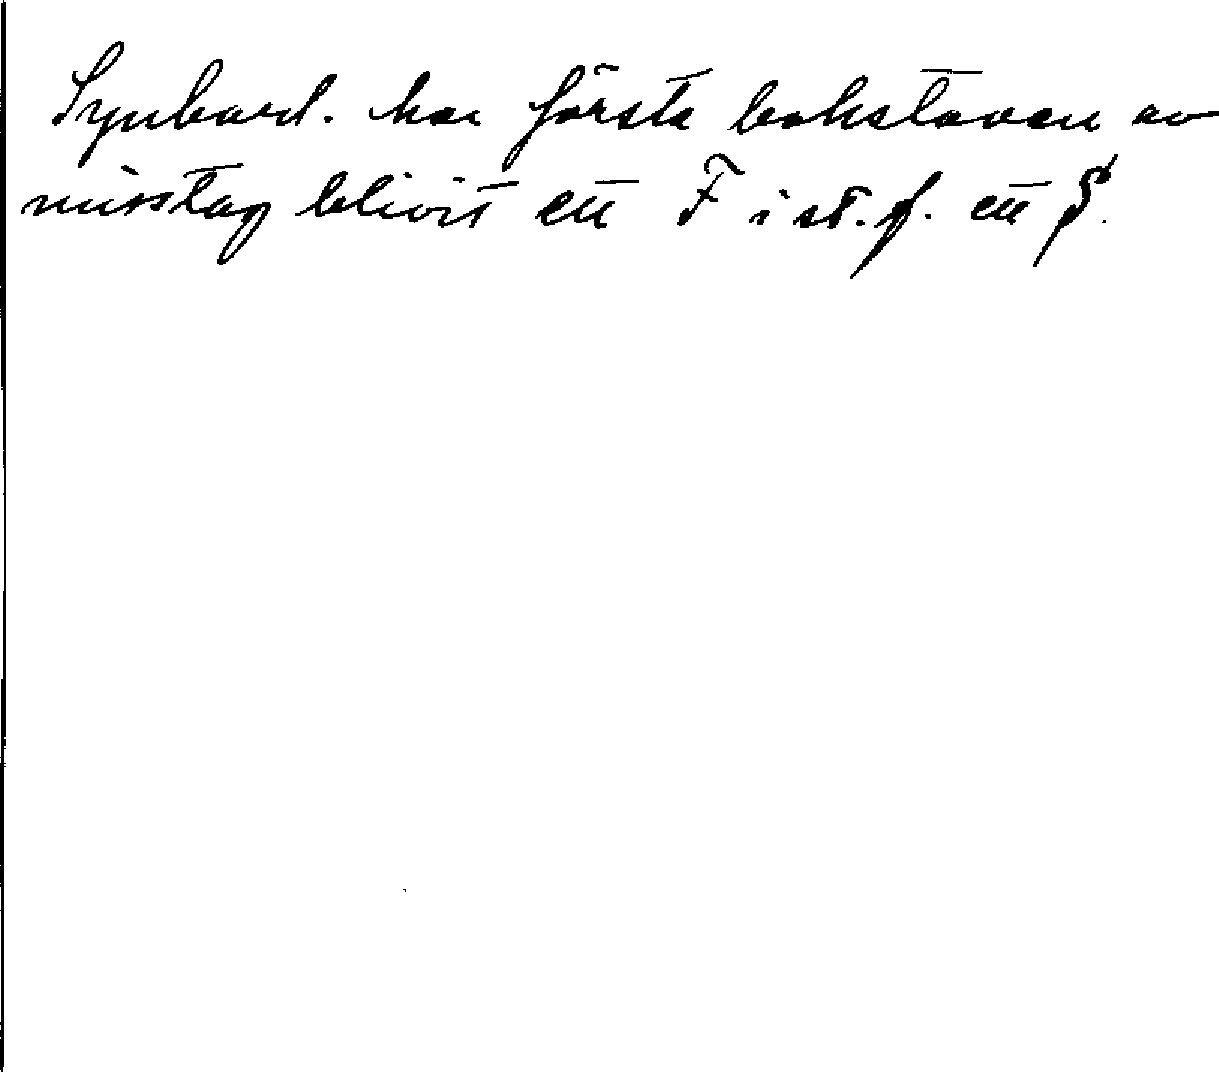 Synbard. har första bokstaven av
misstag blivit ett F i st. f. ett S.